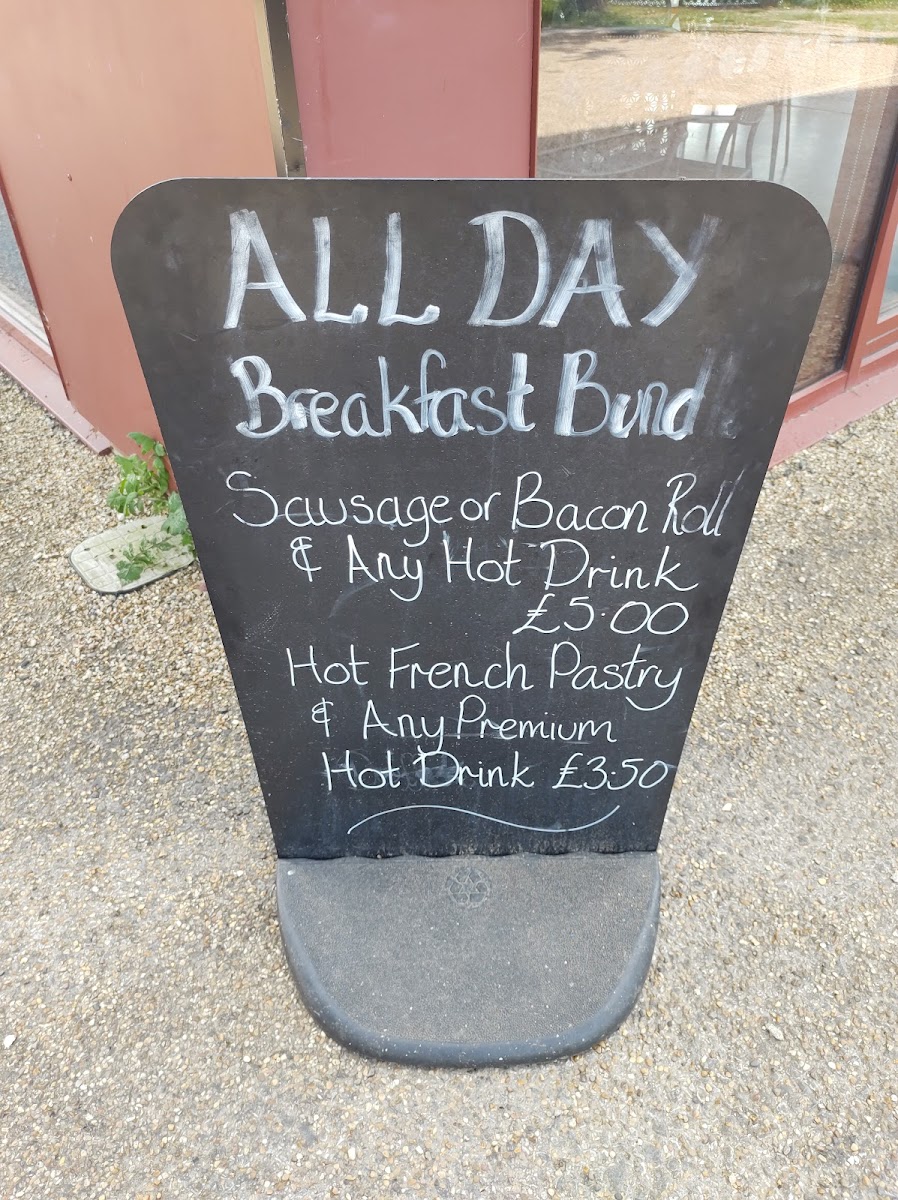 ALL DAY
Breakfast Bund
Sausage or Bacon Roll
& Any Hot Drink
£5.00
Hot French Pastry
& Any Premium
Hot Drink £3.50